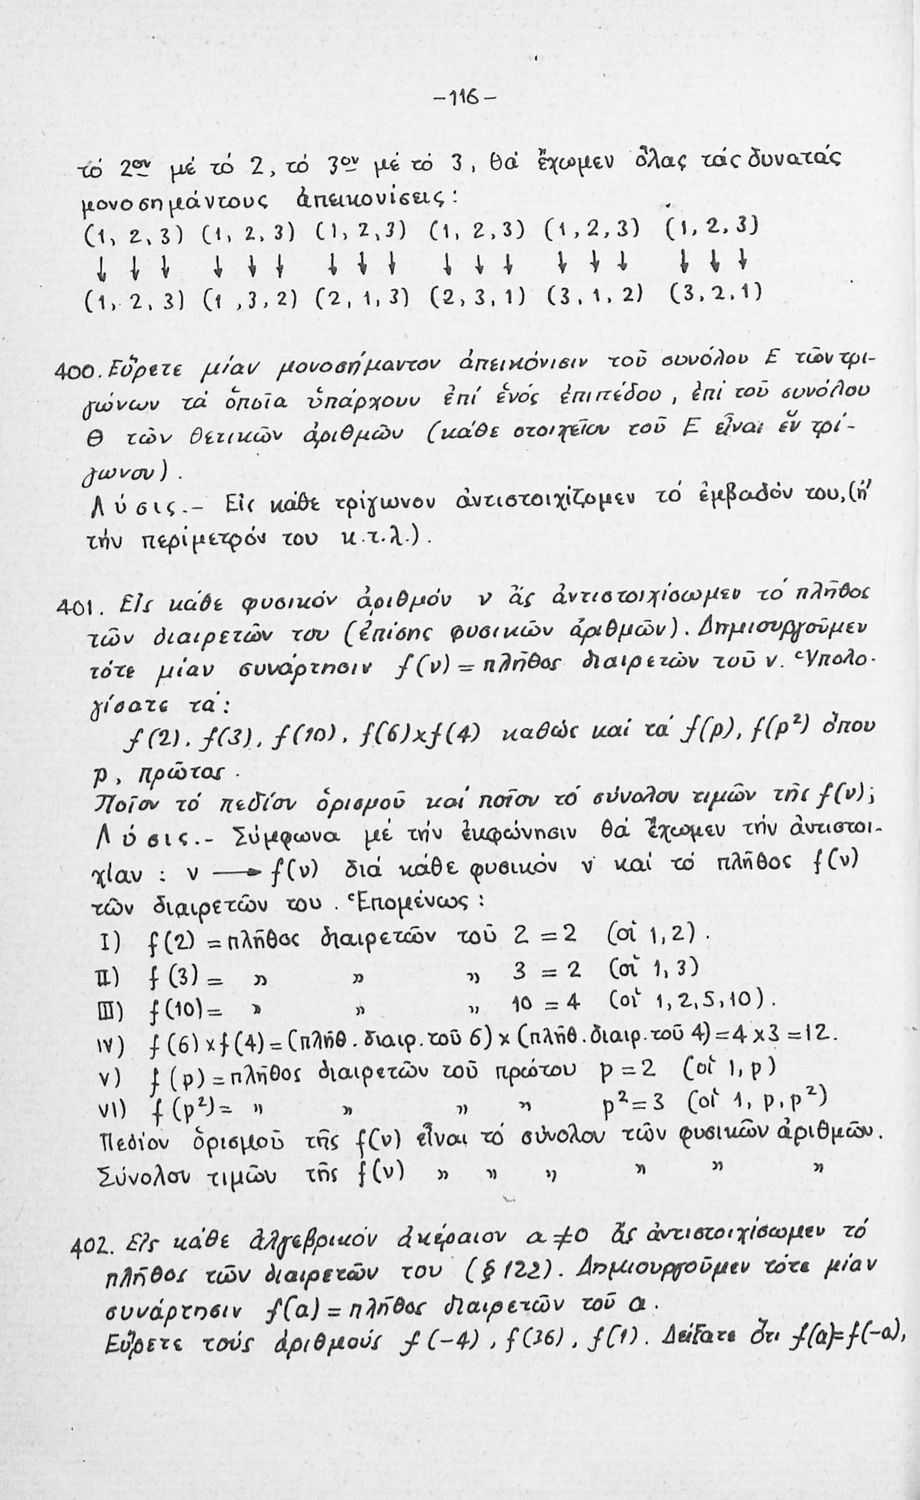 -116-
τό 2ον μέ τό 2, τό 3ον μέ τό 3, θά ἔχωμεν ὅλας τάς δυνατάς
μονοσημάντους ἀπεικονίσεις:
(1, 2, 3) (1, 2, 3) (1, 2, 3) (1, 2, 3) (1, 2, 3) (1, 2, 3)
↓ ↓ ↓ ↓ ↓ ↓ ↓ ↓ ↓ ↓ ↓ ↓ ↓ ↓ ↓ ↓ ↓ ↓
(1, 2, 3) (1, 3, 2) (2, 1, 3) (2, 3, 1) (3, 1, 2) (3, 2, 1)
400. Εὕρετε μίαν μονοσήμαντον ἀπεικόνισιν τοῦ συνόλου Ε τῶν τρι-
γώνων τά ὁποῖα ὑπάρχουν ἐπί ἑνός ἐπιπέδου, ἐπί τοῦ συνόλου
Θ τῶν θετικῶν ἀριθμῶν (κάθε στοιχεῖον τοῦ Ε εἶναι ἕν τρί-
γωνον).
Λύσις.- Εἰς κάθε τρίγωνον ἀντιστοιχίζομεν τό ἐμβαδόν του, (ἤ
τήν περίμετρόν του κ.τ.λ.).
401. Εἰς κάθε φυσικόν ἀριθμόν ν ἄς ἀντιστοιχίσωμεν τό πλῆθος
τῶν διαιρετῶν του (ἐπίσης φυσικῶν ἀριθμῶν). Δημιουργοῦμεν
τότε μίαν συνάρτησιν f(ν) = πλῆθος διαιρετῶν τοῦ ν. Ὑπολο-
γίσατε τά:
f(2), f(3), f(10), f(6)xf(4) καθώς καί τά f(p), f(p²) ὅπου
p, πρῶτος.
Ποῖον τό πεδίον ὁρισμοῦ καί ποῖον τό σύνολον τιμῶν τῆς f(ν);
Λύσις.- Σύμφωνα μέ τήν ἐκφώνησιν θά ἔχωμεν τήν ἀντιστοι-
χίαν : ν ⟶ f(ν) διά κάθε φυσικόν ν καί τό πλῆθος f(ν)
τῶν διαιρετῶν του. Ἑπομένως:
I) f(2) = πλῆθος διαιρετῶν τοῦ 2 = 2 (οἱ 1,2).
II) f(3) = » » » 3 = 2 (οἱ 1,3)
III) f(10) = » » » 10 = 4 (οἱ 1,2,5,10).
IV) f(6)xf(4) = (πλῆθ. διαιρ. τοῦ 6) x (πλῆθ. διαιρ. τοῦ 4) = 4 x 3 = 12.
V) f(p) = πλῆθος διαιρετῶν τοῦ πρώτου p = 2 (οἱ 1, p)
VI) f(p²) = » » » » p² = 3 (οἱ 1, p, p²)
Πεδίον ὁρισμοῦ τῆς f(ν) εἶναι τό σύνολον τῶν φυσικῶν ἀριθμῶν.
Σύνολον τιμῶν τῆς f(ν) » » » » » »
402. Εἰς κάθε ἀλγεβρικόν ἀκέραιον α ≠ 0 ἄς ἀντιστοιχίσωμεν τό
πλῆθος τῶν διαιρετῶν του (§ 122). Δημιουργοῦμεν τότε μίαν
συνάρτησιν f(α) = πλῆθος διαιρετῶν τοῦ α.
Εὕρετε τούς ἀριθμούς f(-4), f(36), f(1). Δείξατε ὅτι f(α)=f(-α),